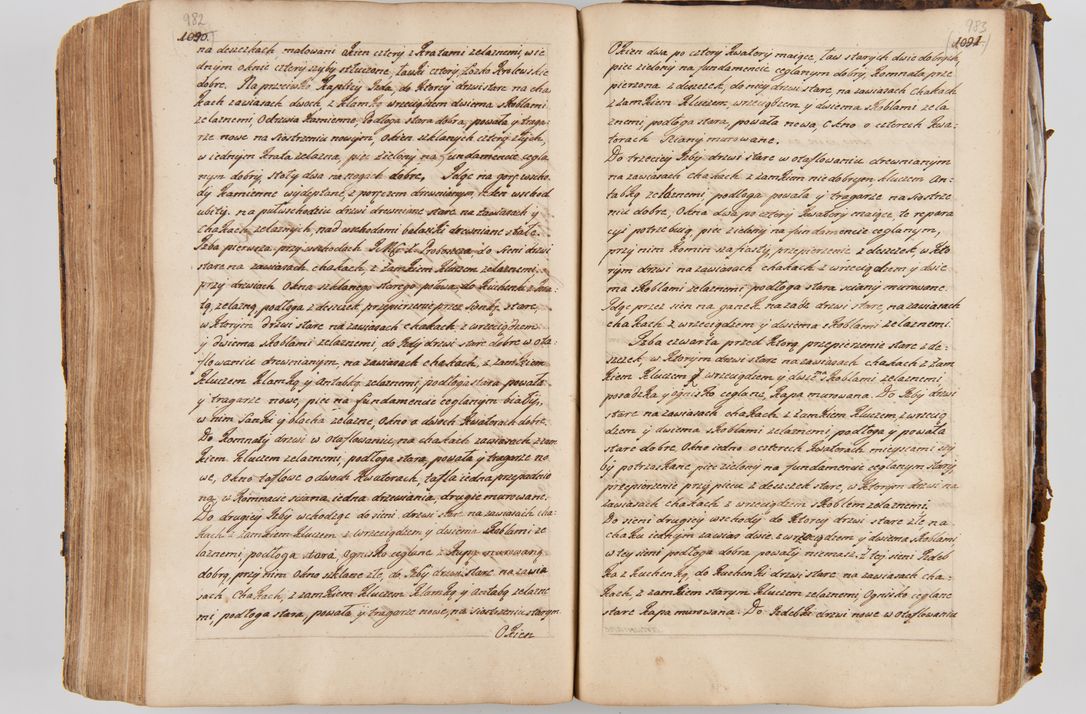 982
1090.
na deszczkach malowani Okien cztery z Kratami zelaznemi, w ie
dnym oknie cztery szyby stłuczone, ławki cztery, Łozko Krolewskie
dobre. Na przeciwko Kaplicy Izda, do ktorey drzwi stare na cha
kach zawiasach dwoch z Klamką wrzeciądzem dwiema skoblami
zelaznemi, Odrzwia Kamienne Podłoga stara dobra, powała y traga-
rze nowe na siestrzeniu nowym, Okien szklanych cztery złych,
w iednym Krata zelazna, piec zielony na fundamencie cegla
nym dobry, stoły dwa na nogach dobre, Idąc na gorę wscho-
dy Kamienne wydeptane, z poręczem drewnianym, ieden wschod
ubity. na pułwschodziu drzwi drewniane stare na zawiasach y
chakach zelaznych, nad wschodami balaski drewniane stałe.
Izba pierwsza przy wschodach do sieni drzwi
stare na zawiasach chakach, z zamkiem Kluczem zelaznemi.
przy drzwiach Okna szklanego starego połowa, do Kuchenki z Kra
tą zelazną, podłoga z deszczek, przepierzenie przez sionkę stare,
w ktorym drzwi stare na zawiasach chakach z wrzeciądzem
y dwiema skoblami zelaznemi, do Izby drzwi stare dobre w ota-
flowaniu drewnianym, na zawiasach chakach, z zamkiem
Kluczem Klamką y Antabką zelaznemi, podłoga stara, powała
y tragarze nowe, piec na fundamencie ceglanym biały,
w nim Fanki y blacha zelazne, Okno o dwoch Kwaterach dobre.
Do Komnaty drzwi w otaflowaniu, na chakach zawiasach z zam
kiem Kluczem zelaznemi, podłoga stara, powała y tragarze no
we, Okno taflowe o dwoch Kwaterach, tafla iedna przypadnio
na, w Komnacie sciana iedna drzewiania, drugie murowane.
Do drugiey Izby wchodząc do sieni drzwi stare na zawiasach cha-
kach z zamkiem Kluczem z wrzeciądzem y dwiema skoblami ze
laznemi, podłoga stara, Ognisko ceglane z Kapą murowaną
dobrą, przy nim Okno szklane złe, do Izby drzwi stare na zawia
sach, chakach, z zamkiem Kluczem Klamką y Antabą zelazne
mi, podłoga stara, powała y tragarze nowe, na siestrzeniu starym.
Okien
983
1091.
Okien dwa po cztery Kwatery maiące, ław starych dwie dobrych,
piec zielony na fundamencie ceglanym dobry, Komnata prze
pierzona z deszczek, do ney drzwi stare, na zawiasach chakach
z zamkiem Kluczem, wrzeciądzem y dwiema skoblami zela
znemi, podłoga stara, powała nowa, Okno o czterech Kwa-
terach Sciany murowane.
Do trzeciey Izby drzwi stare w otaflowaniu drewnianym
na zawiasach chakach z zamkiem niedobrym kluczem An-
tabką zelaznemi, podłoga powała y tragarze na siostrze
niu dobre, Okna dwa po cztery Kwatery maiące, te repara
cyi potrzebuią, piec zielony na fundamencie ceglanym,
przy nim Komin szafiasty, przepierzenie z deszczek, w kto
rym drzwi na zawiasach chakach z wrzeciądzem y dwie
ma skoblami zelaznemi podłoga stara sciany murowane.
Idąc przez sien na ganek nazad drzwi stare, na zawiasach
chakach z wrzeciądzem y dwiema skoblami zelaznemi.
Izba czwarta przed ktorą przepierzenie stare z de-
szczek, w ktorym drzwi stare na zawiasach chakach z zam
kiem Kluczem y wrzeciądzem y dwiema skoblami zelaznemi,
posadzka y ognisko ceglane, Kapa murwana. Do Izby drzwi
stare na zawiasach chakach z zamkiem Kluczem z wrzecią
dzem y dwiema skoblami zelaznemi podłoga y powała
stare dobre, Okno iedno o czterech Kwaterach mieyscami szy
by potrzaskane, piec zielony na fundamencie ceglanym stary,
przepierzenie przy piecu z deszczek stare, w ktorym drzwi na
zawiasach chakach z wrzeciądzem skoblem zelaznemi.
Do sieni drugiey wschody do ktorey drzwi stare złe na
chaku iednym zawias dwie z wrzeciądzem y dwiema skoblami
w tey sieni podłoga dobra, powały niemasz, z tey sieni Izdeb
ka z Kuchenką, do Kuchenki drzwi stare na zawiasach cha-
kach, z zamkiem starym Kluczem zelaznemi Ognisko ceglane
stare Kapa murowana. Do Izdebki drzwi nowe w otaflowaniu